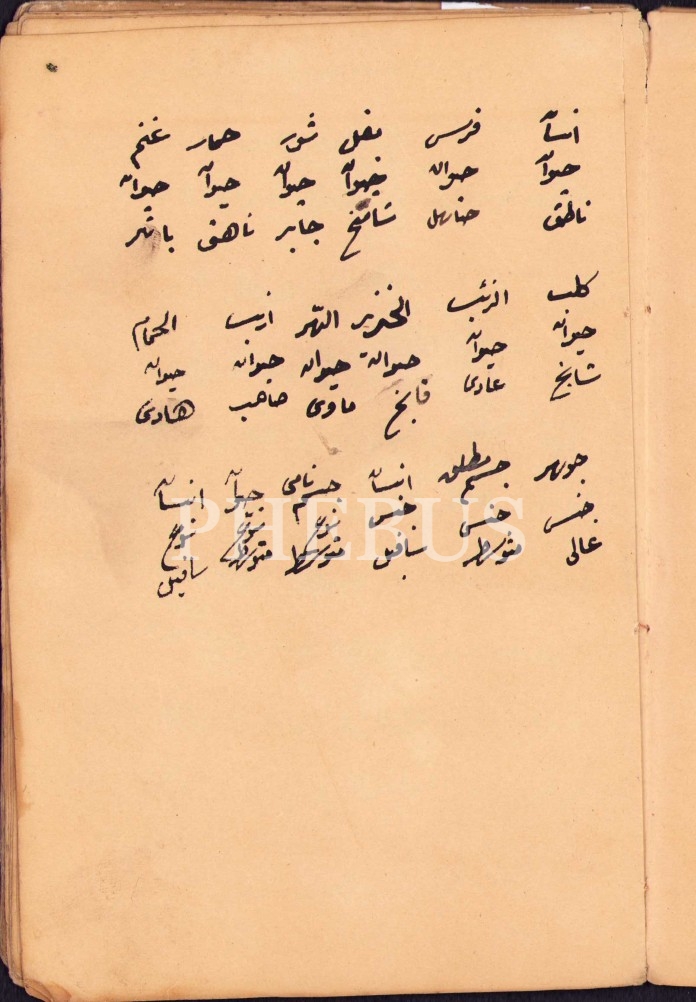 انسان فرس بغل ثور حمار غنم
حيوان حيوان حيوان حيوان حيوان حيوان
ناطق صاهل شامخ جابر ناهق
كلب الذئب الخنزير الهر ارنب الحمام
حيوان حيوان حيوان حيوان حيوان حيوان
شابخ عادى قابخ ماوى صاحب هادى
جوهر جسم مطلق انسان جسم نامى حيوان انسان
جنس جنس جنس نوع نوع نوع
عالى متوسط سافل متوسط متوسط سافل
PHEBUS